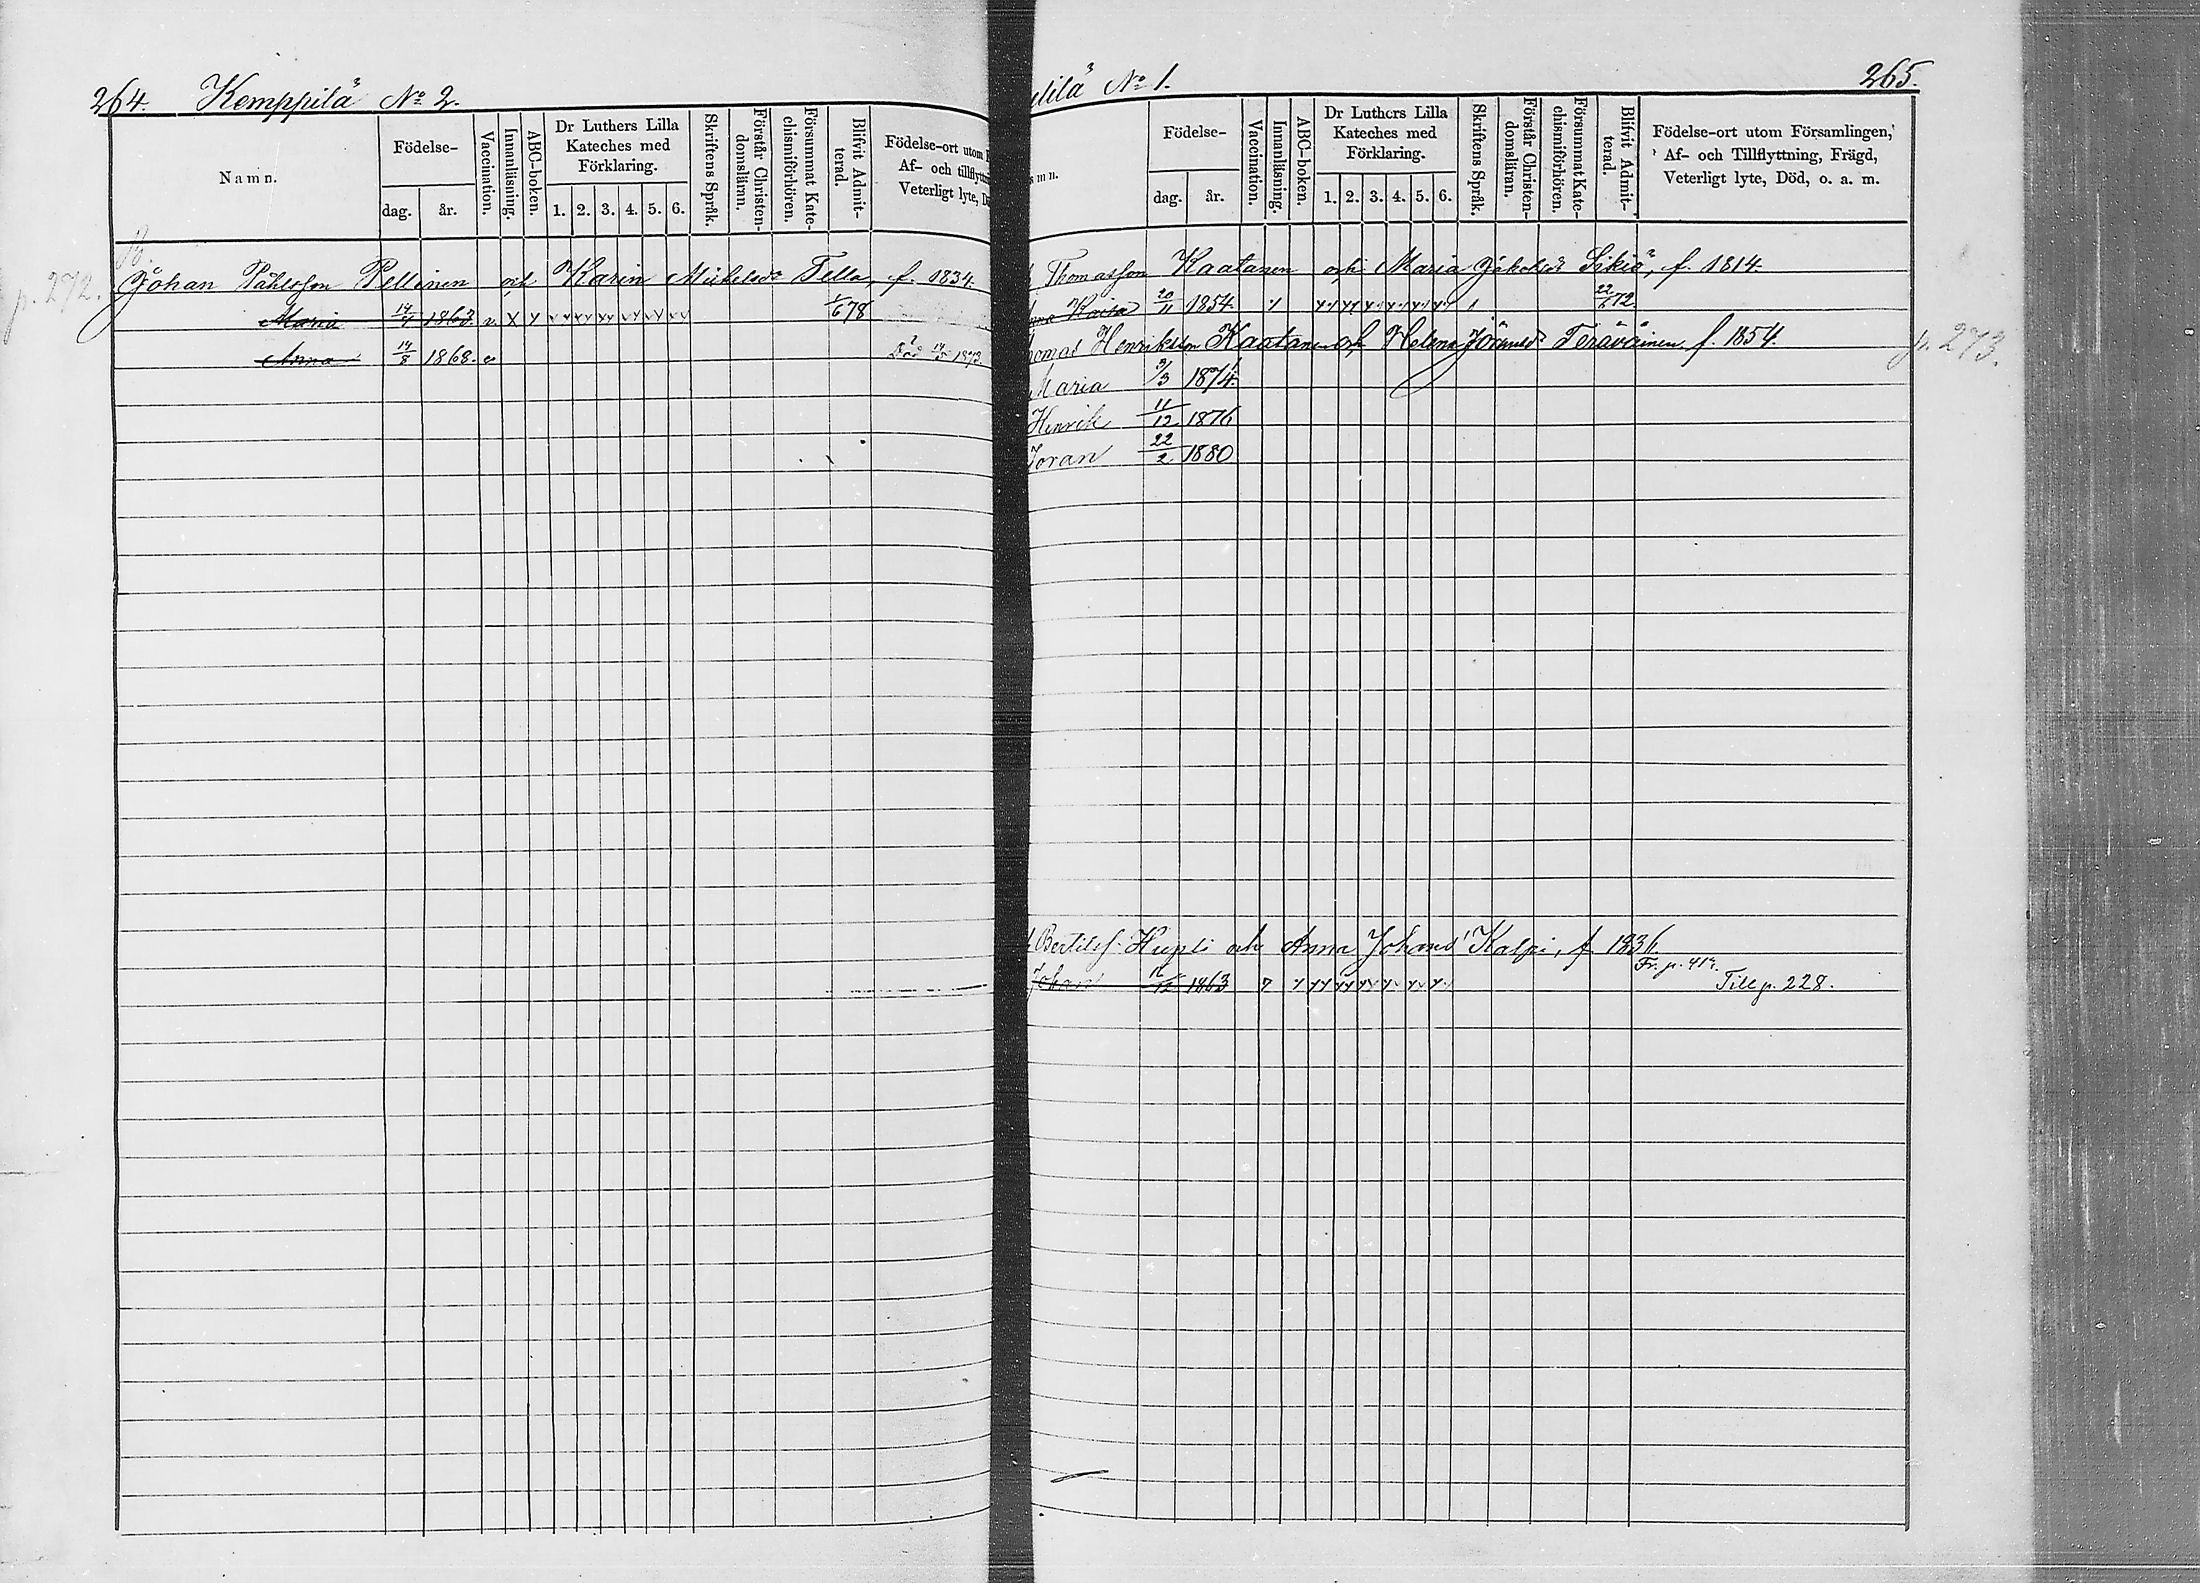 264. Kemppilä No 2.
Namn.
Födelse-
dag. år.
Vaccination.
Innanläsning.
ABC-boken.
Dr Luthers Lilla
Kateches med
Förklaring.
1. 2. 3. 4. 5. 6.
Skriftens Språk.
Förstår Christen-
domsläran.
Försummat Kate-
chismiförhören.
Blifvit Admit-
terad.
Födelse-ort utom
Af- och tillflyttn
Veterligt lyte, D
p. 272.
Johan Påhlsson Pellinen och Karin Mickelsdr Tella, f. 1834.
Maria 1863. v. 78
Anna 1868. v Död 1873.
lilä No 1. 265.
mn.
Födelse-
dag. år.
Vaccination.
Innanläsning.
ABC-boken.
Dr Luthers Lilla
Kateches med
Förklaring.
1. 2. 3. 4. 5. 6.
Skriftens Språk.
Förstår Christen-
domsläran.
Försummat Kate-
chismiförhören.
Blifvit Admit-
terad.
Födelse-ort utom Församlingen,
Af- och Tillflyttning, Frägd,
Veterligt lyte, Död, o. a. m.
Thomasson Kaatanen och Maria Jakobsdr Sikiö, f. 1814.
Kaisa 20/11 1854. 22/6 72
homas Henriksson Kaatanen och Helena Jöransdr Teräväinen f. 1854.
p. 273.
Maria 3/3 1874.
Henrik 11/12 1876
Joran 22/2 1880
Bertilsf. Hupli och Anna Johansd Kalpi, f. 1836
Fr. p. 417.
Johan 1863 Till p. 228.